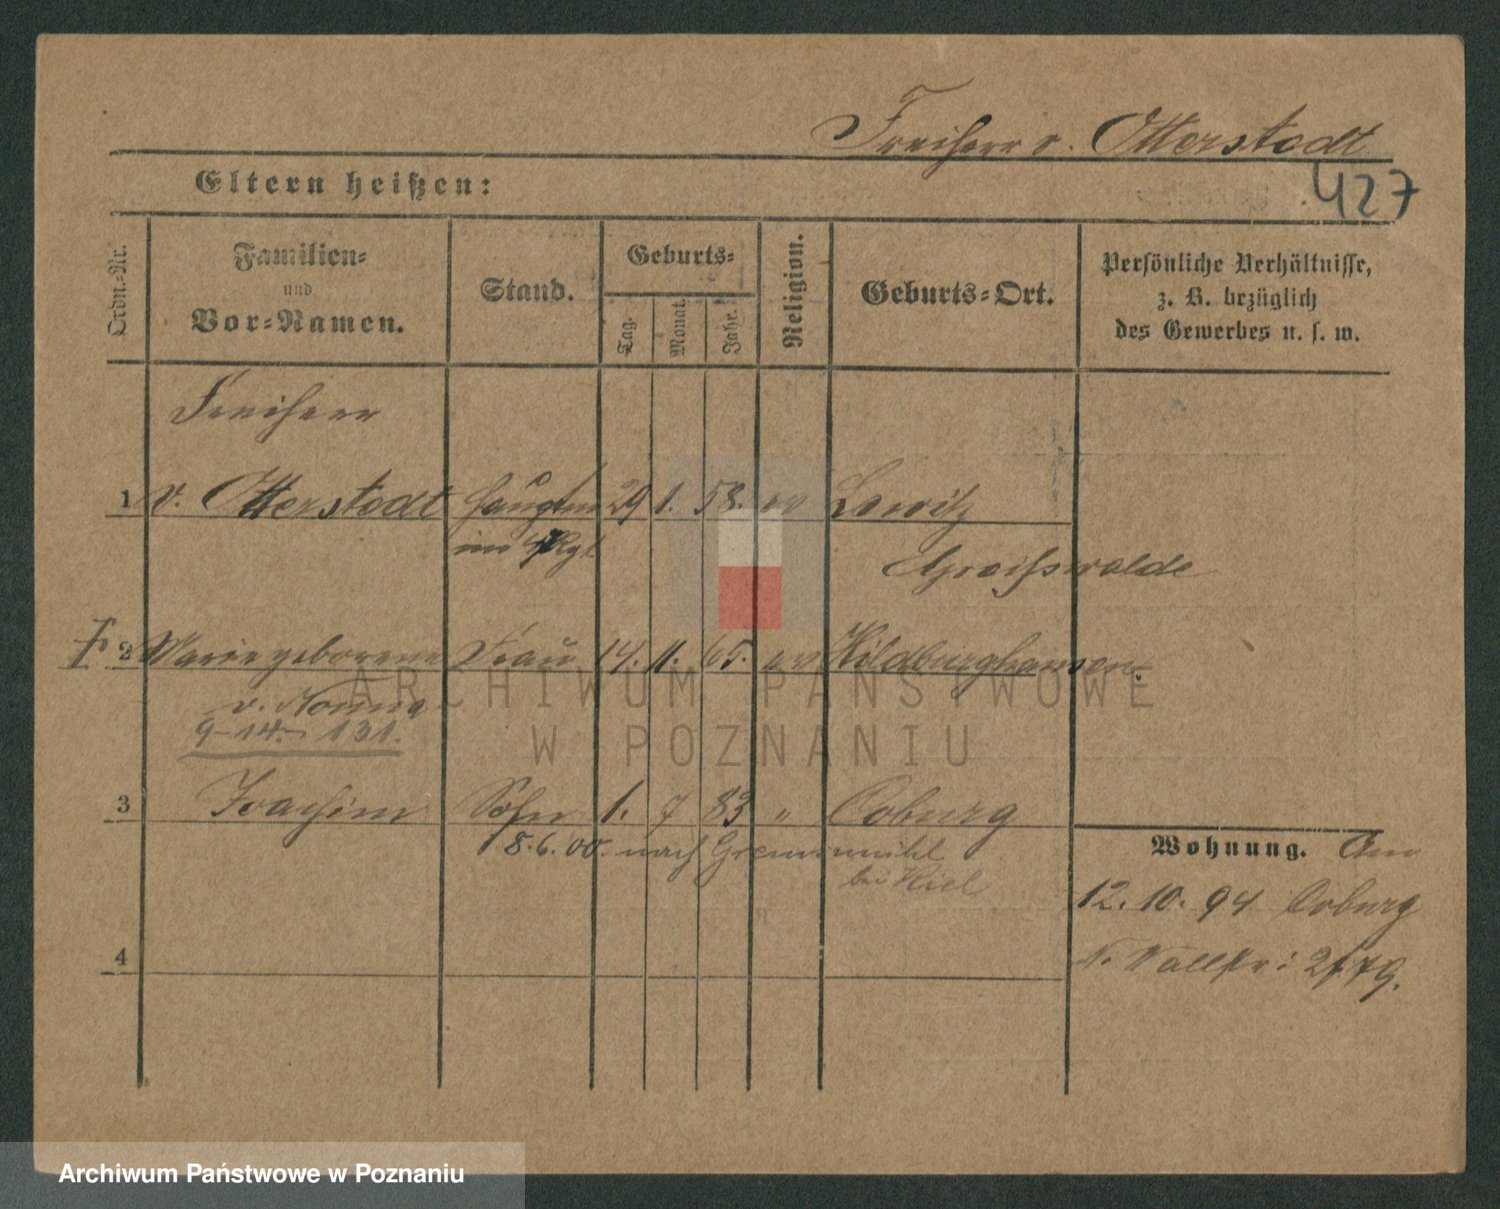 Freiherr v. Otterstedt
427
Eltern heißen:
Ordn.-Nr.
Familien-
und
Vor-Namen.
Stand.
Geburts-
Tag.
Monat.
Jahr.
Religion.
Geburts-Ort.
Persönliche Verhältnisse,
z. B. bezüglich
des Gewerbes u. s. w.
Freiherr
1 v. Otterstedt Hauptm 29 1. 58. ev Lowitz
im Rgt
Greifswalde
2 Marie geborene Frau 14. 11. 65. ev Hildburghausen.
v.
9-14- 131.
3 Joachim Sohn 1. 7 83 " Coburg
8.6.00. nach Gremsmühl
bei Kiel
Wohnung. Am
12. 10. 94 Coburg
4
ARCHIWUM PAŃSTWOWE
W POZNANIU
Archiwum Państwowe w Poznaniu